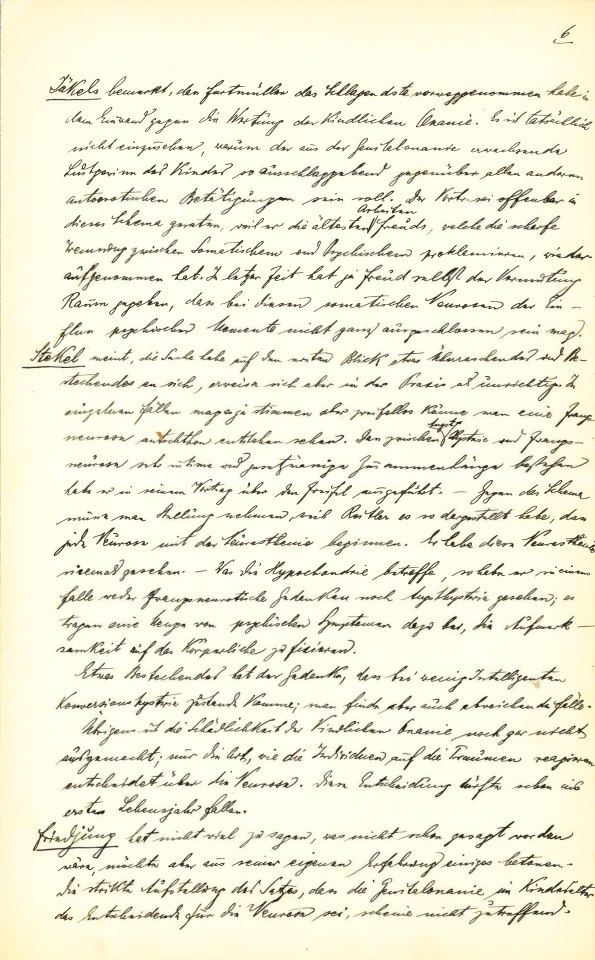 6
Jekels bemerkt, dass Furtmüller das Schlagendste vorweggenommen habe in
dem Einwand gegen die Wertung der kindlichen Onanie. Es ist tatsächlich
nicht einzusehen, warum der aus der Genitalonanie erwachsende
Lustgewinn des Kindes so ausschlaggebend gegenüber allen anderen
autoerotischen Betätigungen sein soll. Der Vortr. sei offenbar in
dieses Schema geraten, weil er die ältesten Arbeiten Freuds, welche die scharfe
Trennung zwischen Somatischem und Psychischem proklamieren, wieder
aufgenommen hat. In letzter Zeit hat ja Freud selbst der Vermutung
Raum gegeben, dass bei diesen somatischen Neurosen der Ein-
fluss psychischer Momente nicht ganz ausgeschlossen sein mag.
Stekel meint, die Sache habe auf den ersten Blick etwas Überraschendes und Be-
stechendes an sich, erweise sich aber in der Praxis als unrichtig. In
einzelnen Fällen mag es ja stimmen aber zweifellos könne man eine Zwangs-
neurose autochthon entstehen sehen. Dass zwischen Angsthysterie und Zwangs-
neurose sehr intime und Zusammenhänge bestehen
habe er in seinem Vortrag über den Zweifel ausgeführt. — Gegen das Schema
müsse man Stellung nehmen, weil Reitler es so dargestellt habe, dass
jede Neurose mit der Neurasthenie beginne. Er habe diese Neurasthenie
niemals gesehen. — Was die Hypochondrie betreffe, so habe er in einem
Falle weder zwangsneurotische Gedanken noch Angsthysterie gesehen; es
tragen eine Menge von psychischen Symptomen dazu bei, die Aufmerk-
samkeit auf das Körperliche zu fixieren.
Etwas Bestechendes hat der Gedanke, dass bei wenig Intelligenten
Konversionshysterie zustande komme; man finde aber auch abweichende Fälle.
Übrigens ist die Schädlichkeit der kindlichen Onanie noch gar nicht
ausgemacht; nur die Art, wie die Individuen auf die Traumen reagieren
entscheidet über die Neurose. Diese Entscheidung dürfte schon ins
erste Lebensjahr fallen.
Friedjung hat nicht viel zu sagen, was nicht schon gesagt worden
wäre, möchte aber aus seiner eigenen Erfahrung einiges betonen.
Die strikte Aufstellung des Satzes, dass die Genitalonanie im Kindesalter
das Entscheidende für die Neurose sei, scheine nicht zutreffend.